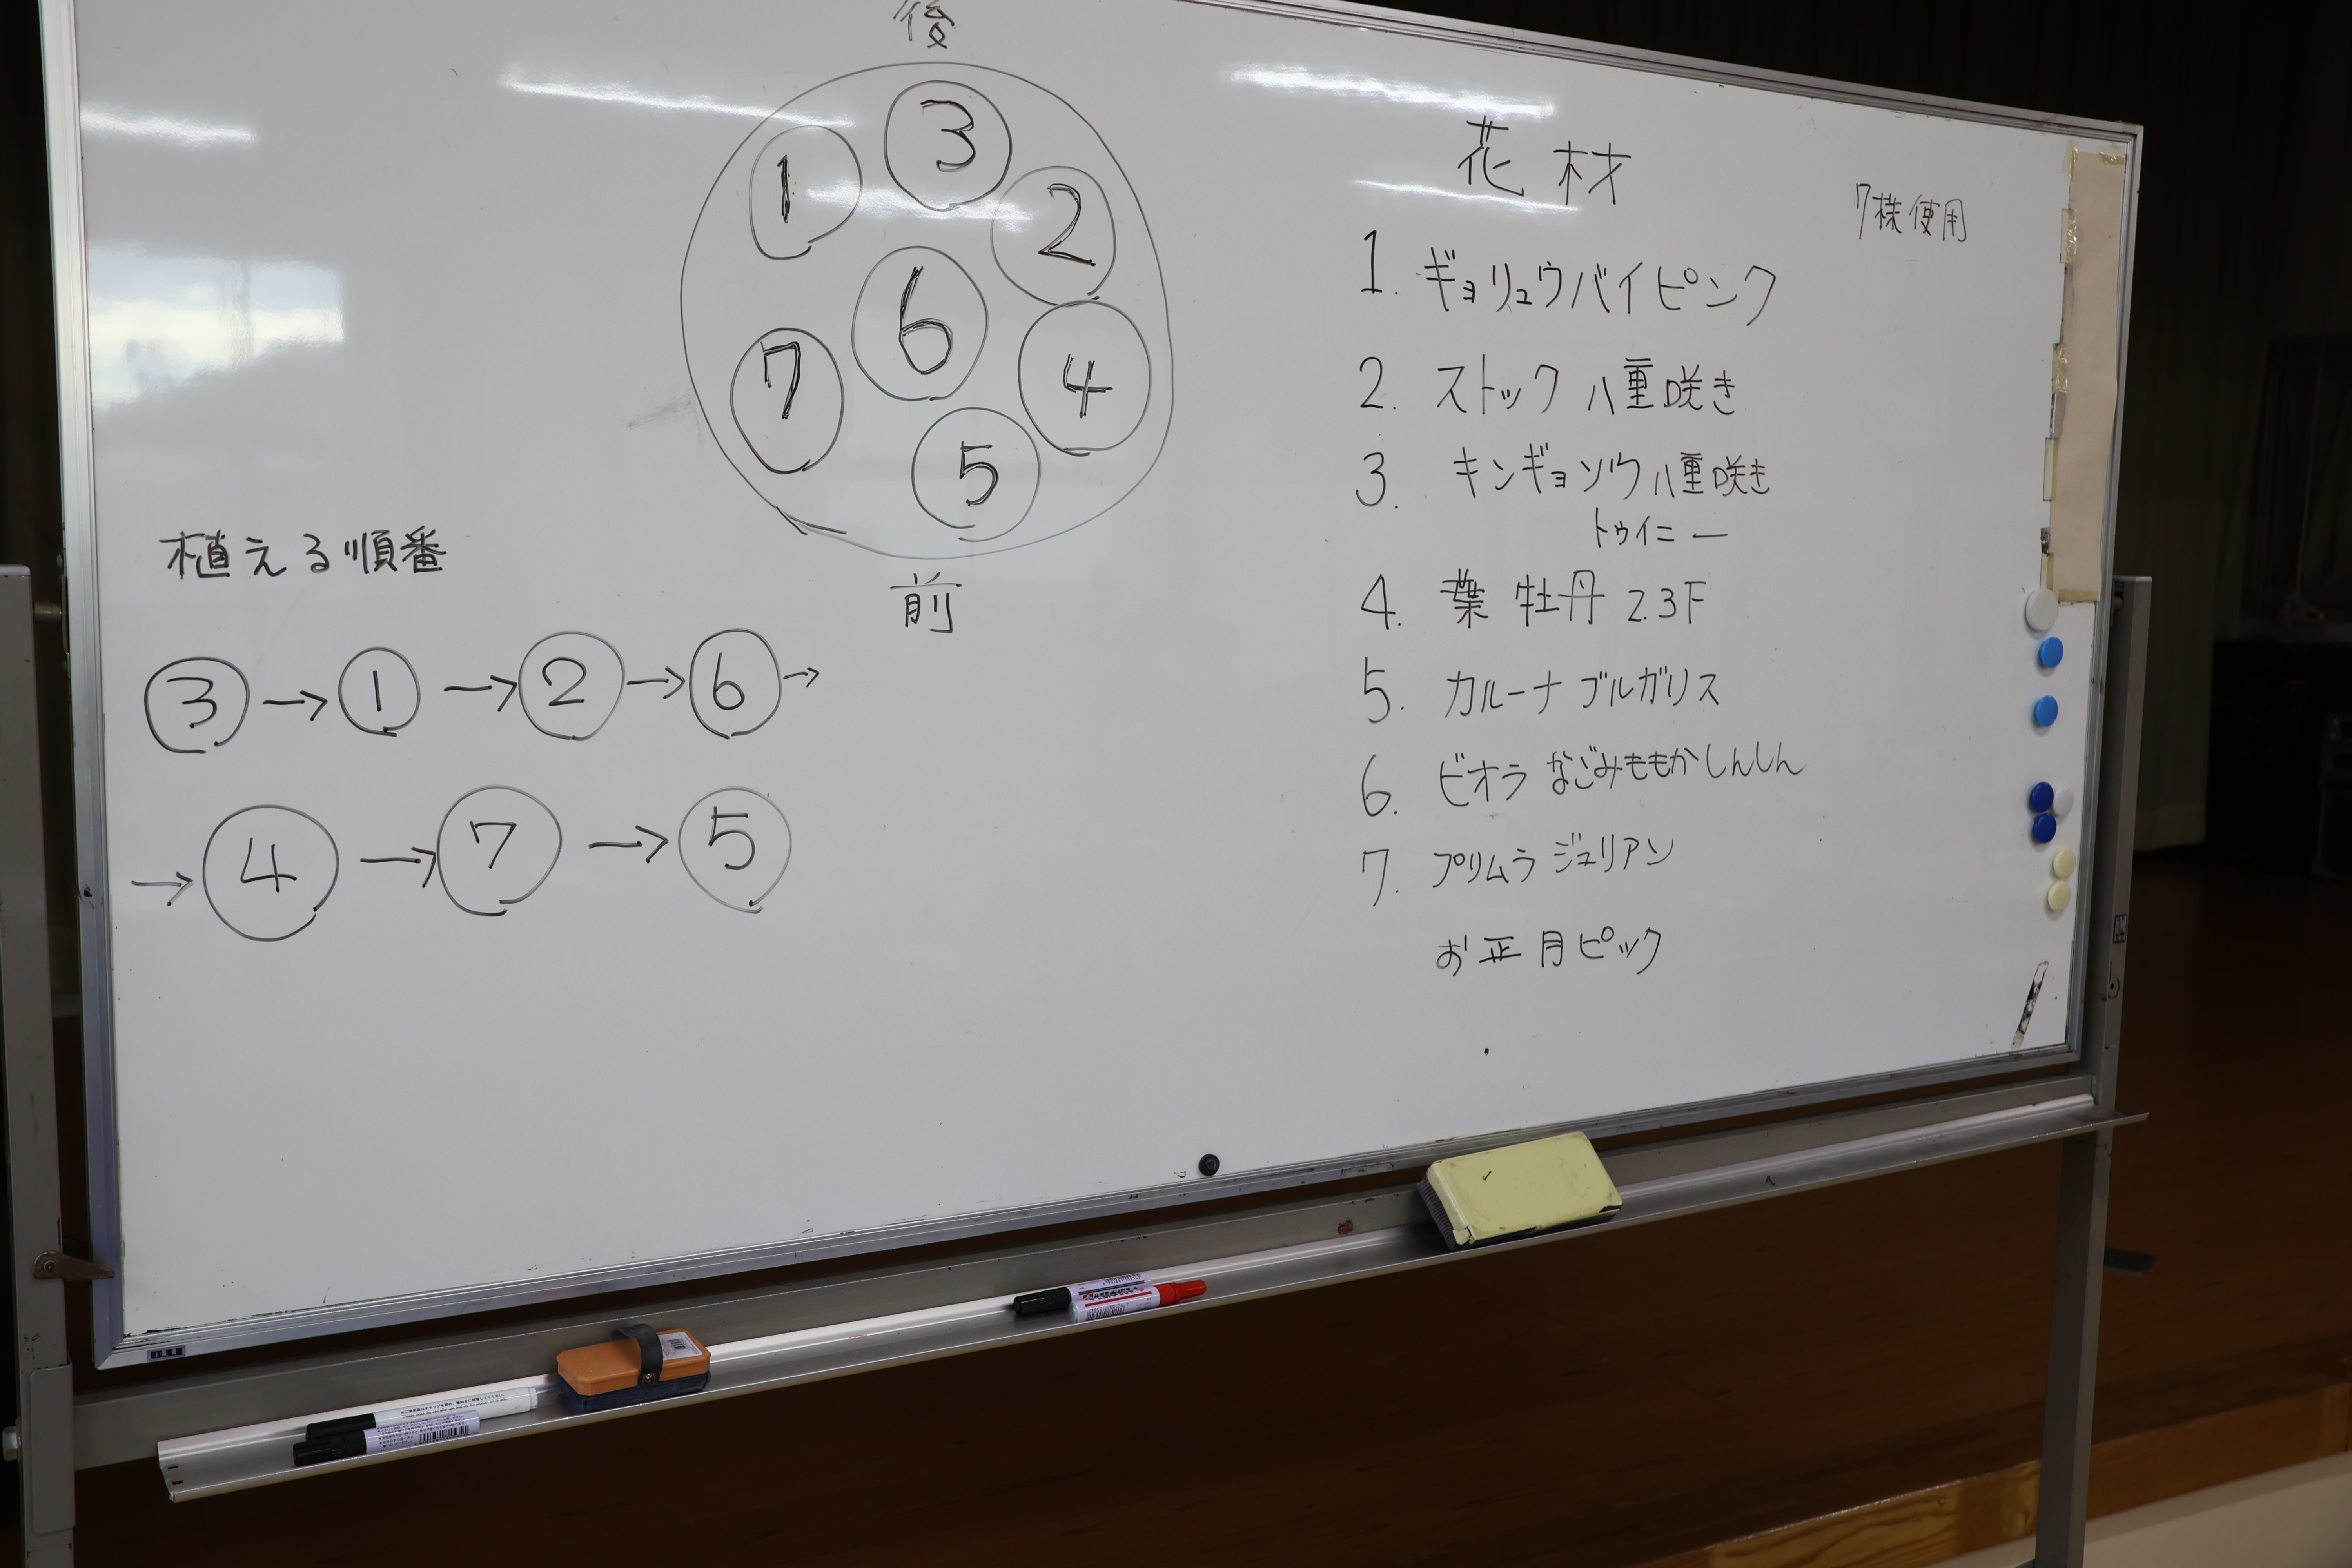 後
1
3
2
6
7
4
5
前
植える順番
3 → 1 → 2 → 6 →
→ 4 → 7 → 5
花材
7株使用
1. ギョリュウバイピンク
2. ストック 八重咲き
3. キンギョソウ八重咲き
トゥイニー
4. 葉牡丹 2.3F
5. カルーナ ブルガリス
6. ビオラ なごみももかしんしん
7. プリムラ ジュリアン
お正月ピック